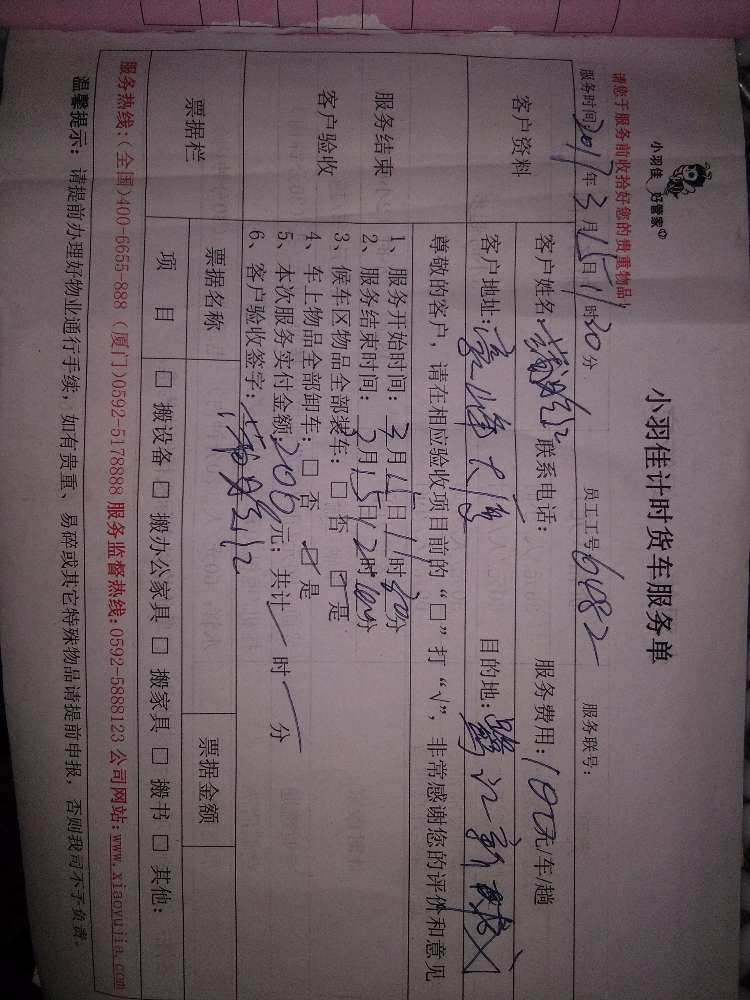 小羽佳 好管家
小羽佳计时货车服务单
请您于服务前收拾好您的贵重物品!
服务时间:2017年3月15日11时30分 员工工号6482 服务联号:
客户资料
客户姓名: 联系电话: 服务费用:100元/车/趟
客户地址:豪峰大厦 目的地:鹭江新城
尊敬的客户,请在相应验收项目前的“□”打“√”,非常感谢您的评价和意见
服务结束
客户验收
1、服务开始时间:3月15日11时30分
2、服务结束时间:3月15日12时 分
3、候车区物品全部装车:□ 否 ☑ 是
4、车上物品全部卸车:□ 否 ☑ 是
5、本次服务实付金额:200元;共计 时 分
6、客户验收签字:
票据栏
票据名称 票据金额
项 目 □ 搬设备 □ 搬办公家具 □ 搬家具 □ 搬书 □ 其他:
服务热线:(全国)400-6655-888 (厦门)0592-5178888 服务监督热线:0592-5888123 公司网站:www.xiaoyujia.com
温馨提示:请提前办理好物业通行手续,如有贵重、易碎或其它特殊物品请提前申报,否则我司不予负责。